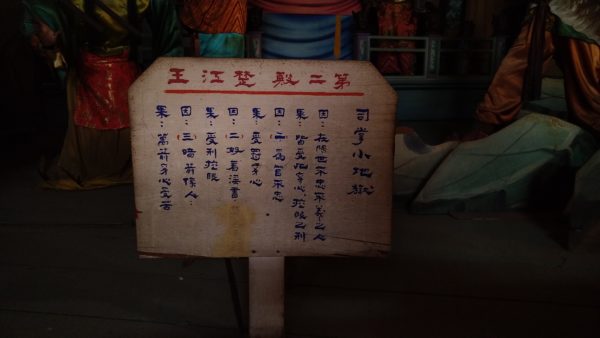 第二殿楚江王
司掌小地獄
因：在陽世不忠不義之人
果：皆受身心,挖眼之刑
因：一為官不忠
果：受身心
因：(二好看淫書
果：受刑挖眼
因：(三暗箭傷人
果：萬箭身心受苦